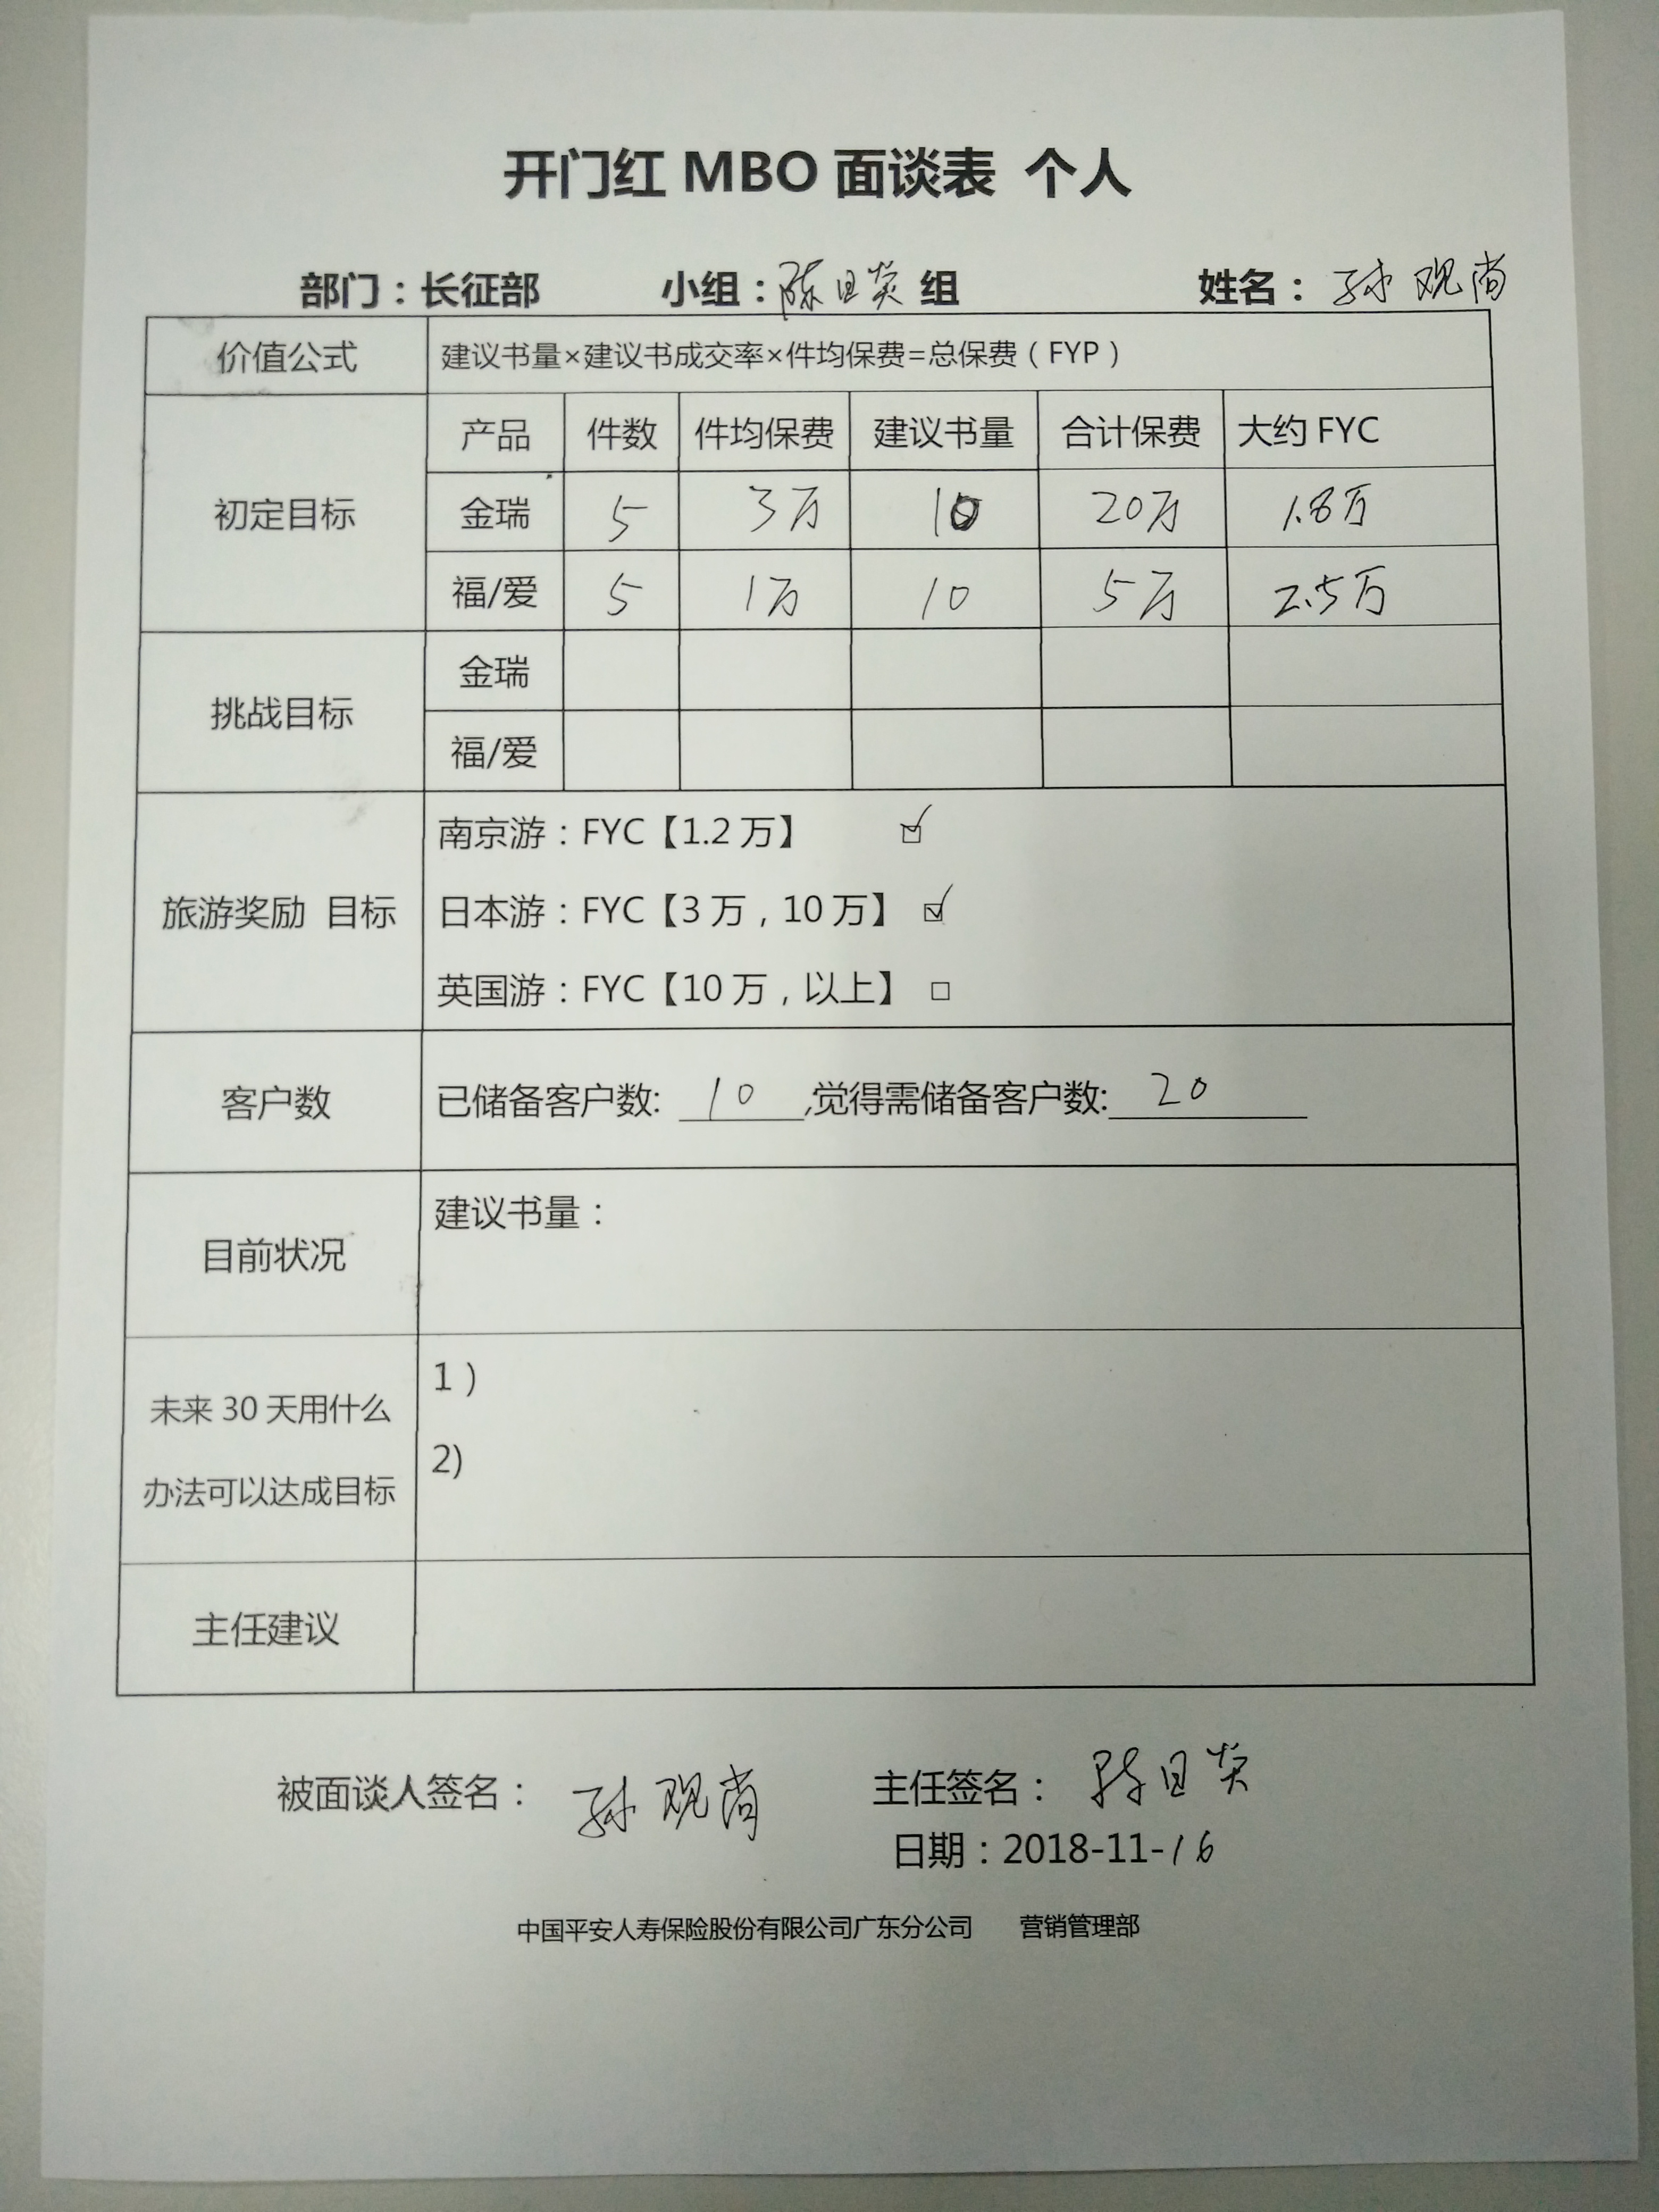 开门红 MBO 面谈表 个人
部门：长征部 小组：陈旦炎 组 姓名：孙观尚
价值公式 建议书量×建议书成交率×件均保费=总保费（FYP）
初定目标 产品 件数 件均保费 建议书量 合计保费 大约 FYC
金瑞 5 3万 10 20万 1.8万
福/爱 5 1万 10 5万 2.5万
挑战目标 金瑞
福/爱
旅游奖励 目标
南京游：FYC【1.2 万】 ☑
日本游：FYC【3 万，10 万】 ☑
英国游：FYC【10 万，以上】 □
客户数 已储备客户数: 10 ,觉得需储备客户数: 20
目前状况 建议书量：
未来 30 天用什么
办法可以达成目标
1）
2)
主任建议
被面谈人签名： 孙观尚 主任签名： 陈旦炎
日期：2018-11-16
中国平安人寿保险股份有限公司广东分公司 营销管理部